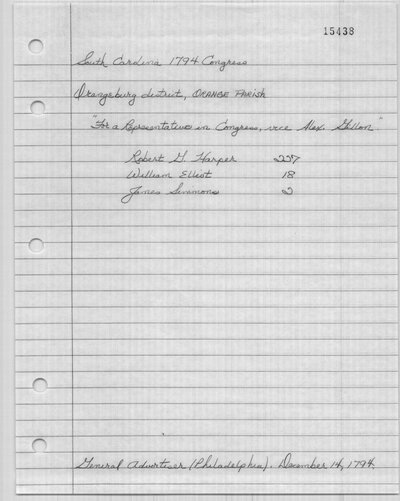 15438
South Carolina 1794 Congress
Orangeburg district, ORANGE PARISH
"For a Representative in Congress, vice Alex. Gillon."
Robert G. Harper 237
William Elliot 18
James Simmons 2
General Advertiser (Philadelphia). December 14, 1794